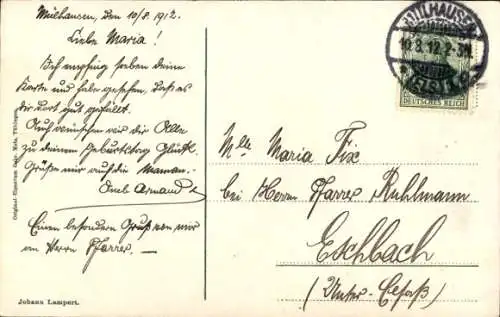 Mülhausen, den 10/8. 1912.
Liebe Maria!
Ich empfing soeben deine
Karte und habe gesehen, daß es
dir dort gut gefällt.
Auch wünschen wir dir Alle
zu deinem Geburtstag Glück.
Grüße mir auch die Maman.
Onkel Armand
Einen besonderen Gruß von mir
an Herrn Pfarrer. —
Johann Lampert.
MÜLHAUSEN
10.8.12.2-3N
DEUTSCHES REICH
Mlle Maria Fix
bei Herrn Pfarrer Ruhlmann
Eschbach
(Unter-Elsaß)